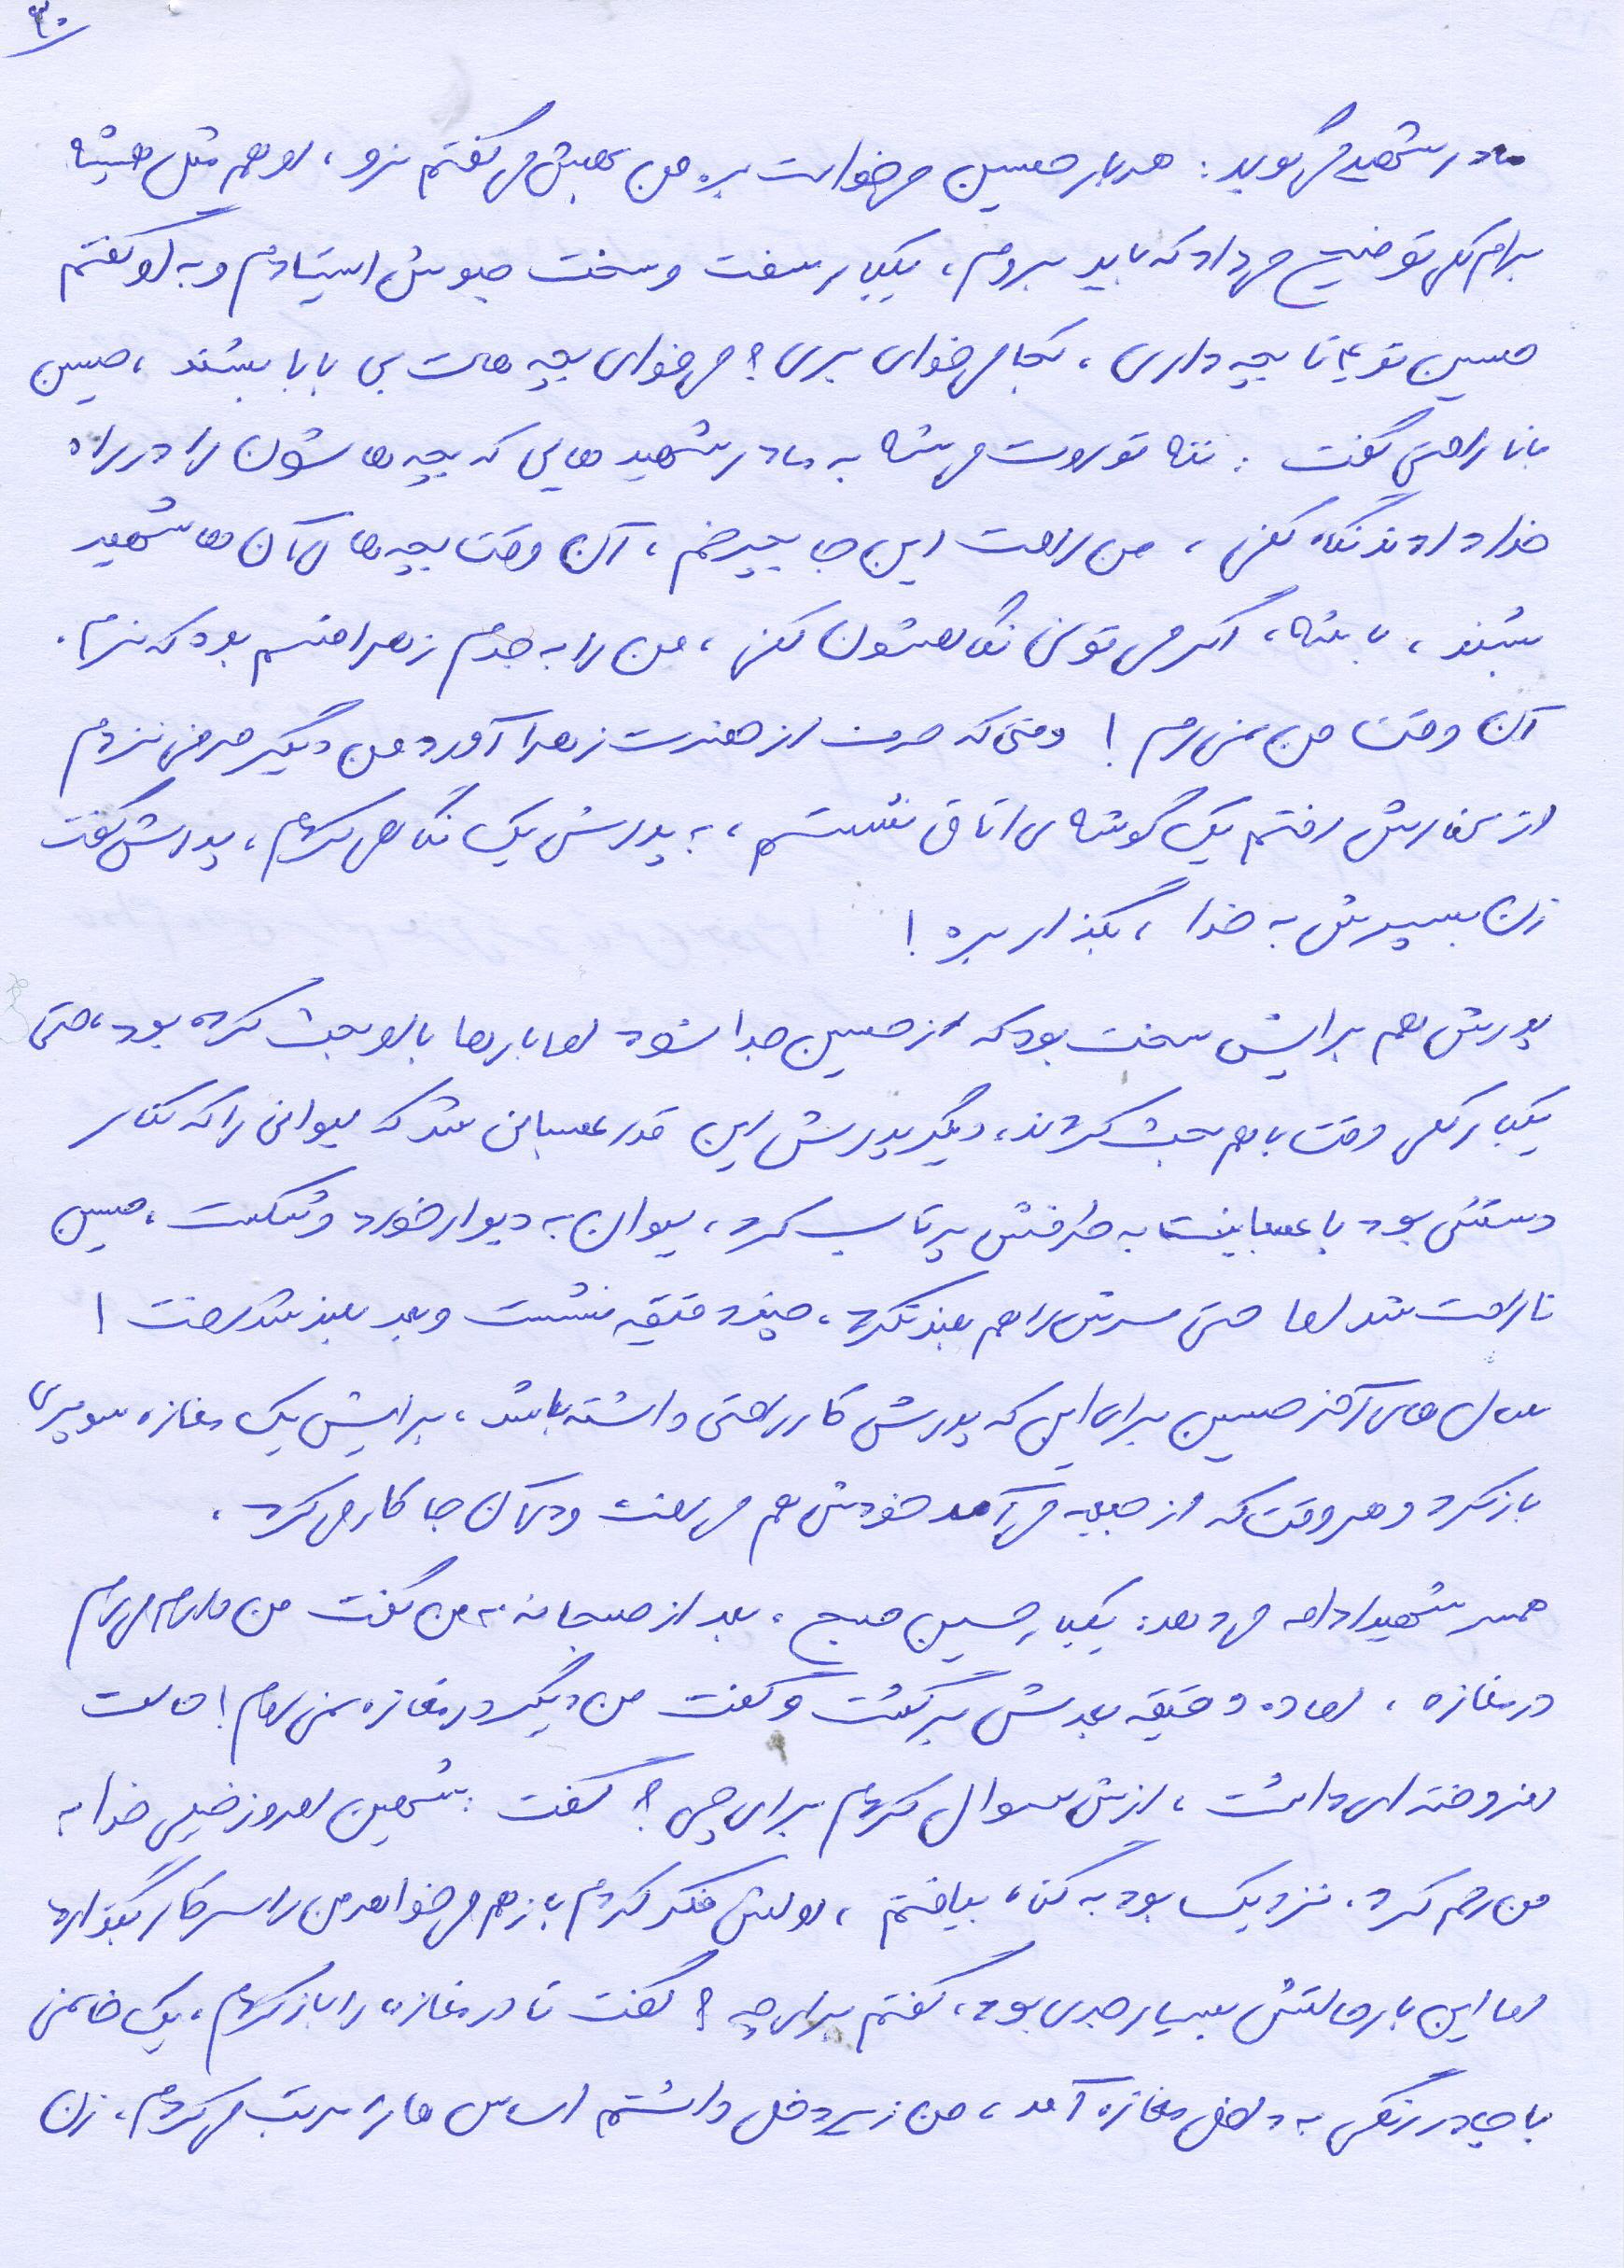 ۳۰
مادر شهید می گوید: هربار حسین می خواست بره من بهش می گفتم نرو، او هم مثل همیشه
برام کلی توضیح می داد که باید بروم، یکبار سفت و سخت جلوش ایستادم و به او گفتم
حسین تو ۴ تا بچه داری، کجا می خوای بری؟ می خوای بچه هات بی بابا بشند، حسین
با ناراحتی گفت: ننه تو روت می شه به مادر شهید هایی که بچه ها شون را در راه
خدا دادند نگاه کنی، من راحت این جا بچرخم، آن وقت بچه های آن ها شهید
بشند، باشه، اگر می تونی نگاهشون کنی، من را به جدم زهرا قسم بده که نرم.
آن وقت من نمی رم! وقتی که حرف از حضرت زهرا آورد من دیگر حرفی نزدم
از کنارش رفتم یک گوشه ی اتاق نشستم، به پدرش یک نگاهی کردم، پدرش گفت
زن بسپرش به خدا، بگذار بره!
پدرش هم برایش سخت بود که از حسین جدا شود اما بارها با او بحث کرده بود، حتی
یکبار کلی وقت با هم بحث کردند، دیگر پدرش این قدر عصبانی شد که لیوانی را که کنار
دستش بود با عصبانیت به طرفش پرتاب کرد، لیوان به دیوار خورد و شکست، حسین
ناراحت شد اما حتی سرش را هم بلند نکرد، چند دقیقه نشست و بعد بلند شد رفت!
سال های آخر حسین برای این که پدرش کار راحتی داشته باشد، برایش یک مغازه سوپری
باز کرد و هر وقت که از جبهه می آمد خودش هم می رفت و در آن جا کار می کرد.
همسر شهید ادامه می دهد: یکبار حسین صبح، بعد از صبحانه به من گفت من دارم می رم
در مغازه، اما ده دقیقه بعدش برگشت و گفت من دیگر در مغازه نمی روم! حالت
افروخته ای داشت، ازش سوال کردم برای چی؟ گفت: شهین امروز خیلی خدا به
من رحم کرد. نزدیک بود به گناه بیافتم، اولش فکر کردم باز هم می خواهد من را سر کار بگذارد
اما این بار حالتش بسیار جدی بود، گفتم برای چه؟ گفت تا در مغازه را باز کردم، یک خانمی
با چادر رنگی به داخل مغازه آمد، من زیر دخل داشتم اساس ها را مرتب می کردم، زن